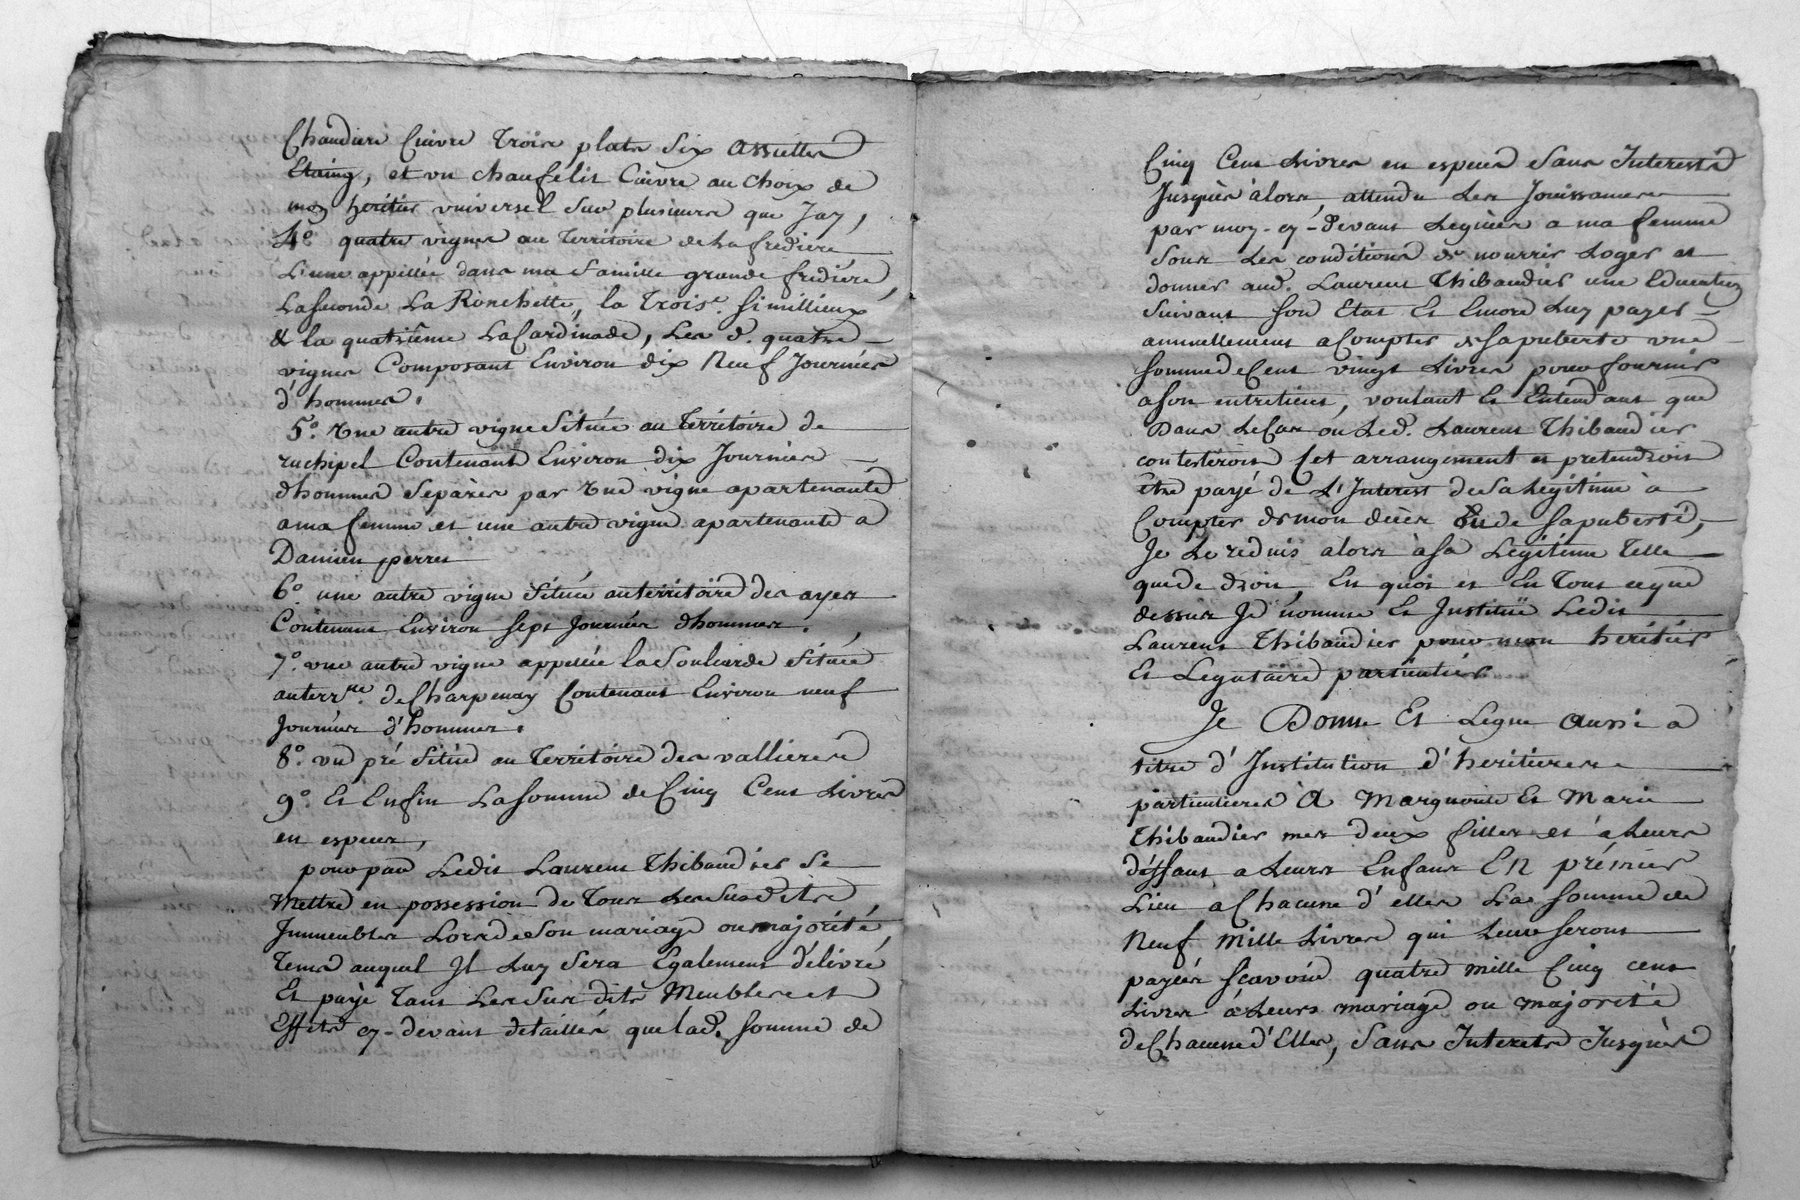 Chaudiere Cuivre Troise plats Six assiettes
Etaing, et un chaufelit Cuivre au choix de
mon heritier universel sur plusieurs que J'ay,
4.° quatre vignes au Territoire de La frediere
L'une appellée dans ma famille grande frediere,
La seconde La Ronchette, la Trois.e
& la quatriême La Cardinade, Les d. quatre
vignes Composant Environ dix Neuf Journées
d'hommes.
5.° une autre vigne Située au Territoire de
ruchipel Contenant Environ dix Journées
d'hommes Separées par une vigne apartenante
a ma femme et une autre vigne apartenante a
Damien perret
6.° une autre vigne Située au territoire des ayes
Contenant Environ sept Journées d'hommes.
7.° une autre vigne appellée la Souliarde Située
au terr.re de Charpenay Contenant Environ neuf
Journées d'hommes.
8.° un pré Situé au Territoire des vallieres
9.° Et Enfin La somme de Cinq Cent Livres
en especes,
pour par Ledit Laurent Thibaudier Se
Mettre en possession de Tous Les susdits
Immeubles Lors de Son mariage ou majorité,
Tems auquel Il Luy Sera Egalement délivré
Et payé Tant Les Sus dits Meubles et
Effets cy-devant detaillés que lad. somme de
Cinq Cent Livres en especes Sans Interests
Jusques àlors, attendu Les Jouissances
par moy-cy-devant Leguées a ma femme
sous Les conditions de nourrir Loger et
donner aud. Laurent Thibaudier une Education
Suivant son Etat Et Encore Luy payer
annuellement a Compter de sa puberté une
somme de Cent vingt Livres pour fournir
a son entretient, voulant Et Entendant que
Dans Le Cas ou Led. Laurent Thibaudier
contesteroit Cet arrangement et pretendroit
être payé de L'Interest de Sa Legitime à
Compter de mon décès ou de sa puberté,
Je Le reduis alors à Sa Légitime Telle
que de droit, En quoi et En Tout ce que
dessus Je nomme Et Institüe Ledit
Laurent Thibaudier pour mon heritier
Et Legataire particulier.
Je Donne Et Legue aussi a
titre d'Institution d'heritieres
particulieres A Marguerite Et Marie
Thibaudier mes deux filles et a Leurs
déffaut a Leurs Enfans En prémier
Lieu a Chacune d'elles La somme de
Neuf Mille Livres qui Leur seront
payées scavoir quatre mille Cinq cent
Livres à Leurs mariage ou majorité
de Chacune d'Elles, Sans Interets Jusques